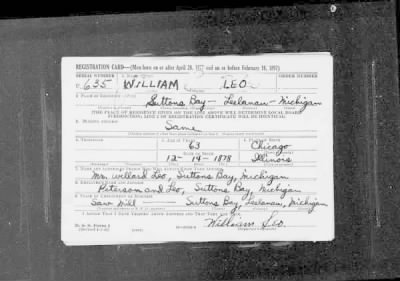 REGISTRATION CARD—(Men born on or after April 28, 1877 and on or before February 16, 1897)
SERIAL NUMBER 1. NAME ORDER NUMBER
U. 635 WILLIAM LEO
2. PLACE OF RESIDENCE
Suttons Bay — Leelanau — Michigan
(THE PLACE OF RESIDENCE GIVEN ON THE LINE ABOVE WILL DETERMINE LOCAL BOARD
JURISDICTION; LINE 2 OF REGISTRATION CERTIFICATE WILL BE IDENTICAL)
3. MAILING ADDRESS
Same
4. TELEPHONE 5. AGE IN YEARS 6. PLACE OF BIRTH
63 Chicago
DATE OF BIRTH
12 - 19 - 1878 Illinois
7. NAME AND ADDRESS OF PERSON WHO WILL ALWAYS KNOW YOUR ADDRESS
Mrs. Willard Leo, Suttons Bay, Michigan
8. EMPLOYER'S NAME AND ADDRESS
Peterson and Leo, Suttons Bay, Michigan
9. PLACE OF EMPLOYMENT OR BUSINESS
Saw Mill — Suttons Bay, Leelanau, Michigan
I AFFIRM THAT I HAVE VERIFIED ABOVE ANSWERS AND THAT THEY ARE TRUE.
D. S. S. Form 1
William Leo.